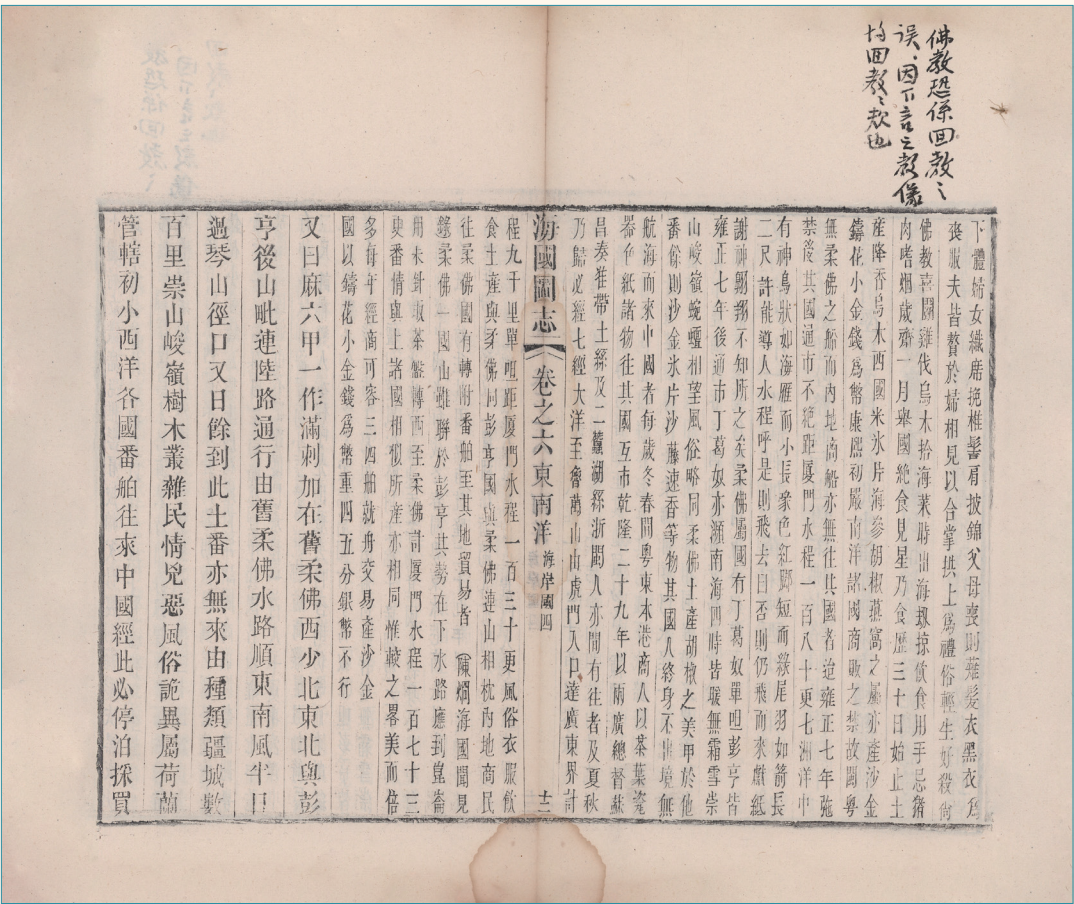 佛教恐係回教之
誤因下言之教儀
均回教之教也
下體婦女織席挽椎髻肩披錦父母喪則薙髮衣黑衣爲
喪服夫皆贅於婦相見以合掌拱上爲禮俗輕生好殺尚
佛教喜鬭雞伐烏木拾海菜時出海刼掠飲食用手忌豬
肉嗜烟歲齋一月舉國絕食見星乃食歷三十日始止土
產降香烏木西國米冰片海參胡椒燕窩之屬亦產沙金
鑄花小金錢爲幣康熙初嚴南洋諸國商販之禁故閩粤
無柔佛之船而內地商船亦無往其國者迨雍正七年弛
禁後其國通市不絕距厦門水程一百八十更七洲洋中
有神鳥狀如海雁而小長喙色紅脚短而綠尾羽如箭長
二尺許能導人水程呼是則飛去曰否則仍飛而來獻紙
謝神翺翔不知所之矣柔佛屬國有丁葛奴單呾彭亨皆
雍正七年後通市丁葛奴亦瀕南海四時皆暖無霜雪崇
山峻嶺蜿蟺相望風俗略同柔佛土產胡椒之美甲於他
番餘則沙金氷片沙藤速香等物其國人終身不出境無
航海而來中國者每歲冬春間粵東本港商人以茶葉瓷
器色紙諸物往其國互市乾隆二十九年以兩廣總督蘇
昌奏准帶土絲及二蠶湖絲浙閩人亦間有往者及夏秋
乃歸必經七經大洋至魯萬山山虎門入口達廣東界計
海國圖志 卷之六東南洋 海岸國四 十二
程九千里單呾距厦門水程一百三十更風俗衣服飲
食土產與柔佛同彭亨國與柔佛連山相枕內地商民
往柔佛國有轉附番舶至其地貿易者 陳烱海國聞見
錄柔佛一國山雖聯於彭亨其勢在下水路應到崑崙
用未針取茶盤轉西至柔佛計厦門水程一百七十三
更番情與上諸國相似所產亦相同惟較之畧美而倍
多每年經商可容三四舶就舟交易產沙金
國以鑄花小金錢爲幣重四五分銀幣不行
又曰麻六甲一作滿刺加在舊柔佛西少北東北與彭
亨後山毗連陸路通行由舊柔佛水路順東南風半日
過琴山徑口又日餘到此土番亦無來由種類疆域數
百里崇山峻嶺樹木叢雜民情兇惡風俗詭異屬荷蘭
管轄初小西洋各國番舶往來中國經此必停泊採買